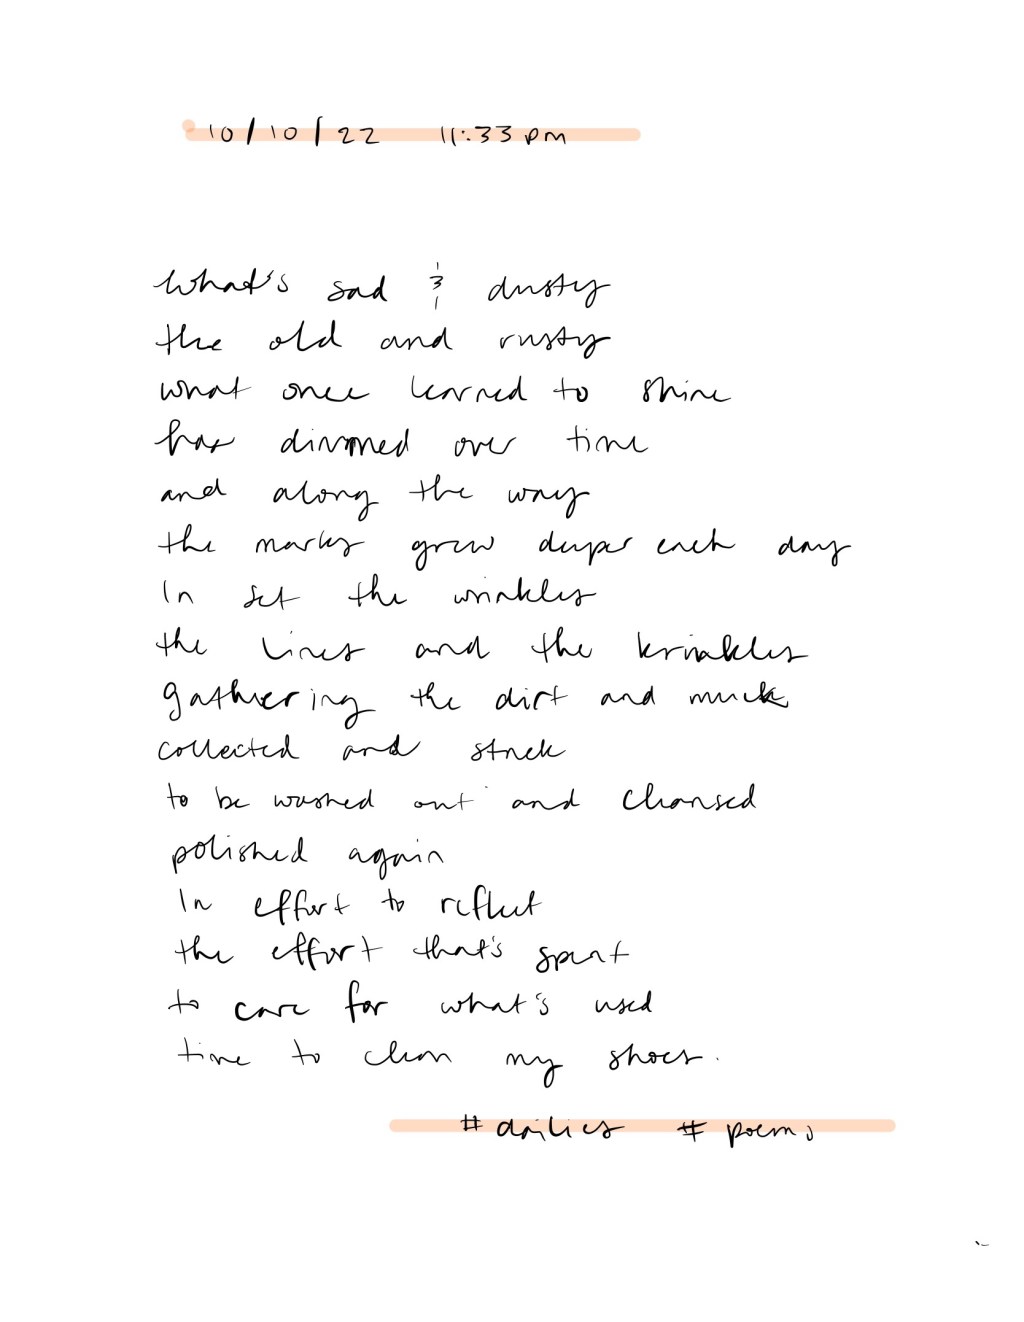 10/10/22 11:33 pm
what's sad & dusty
the old and rusty
what once learned to shine
has dimmed over time
and along the way
the marks grew deeper each day
In set the wrinkles
the lines and the krinkles
gathering the dirt and muck
collected and stuck
to be washed out and cleansed
polished again
In effort to reflect
the effort that's spent
to care for what's used
time to clean my shoes.
#dailies #poems